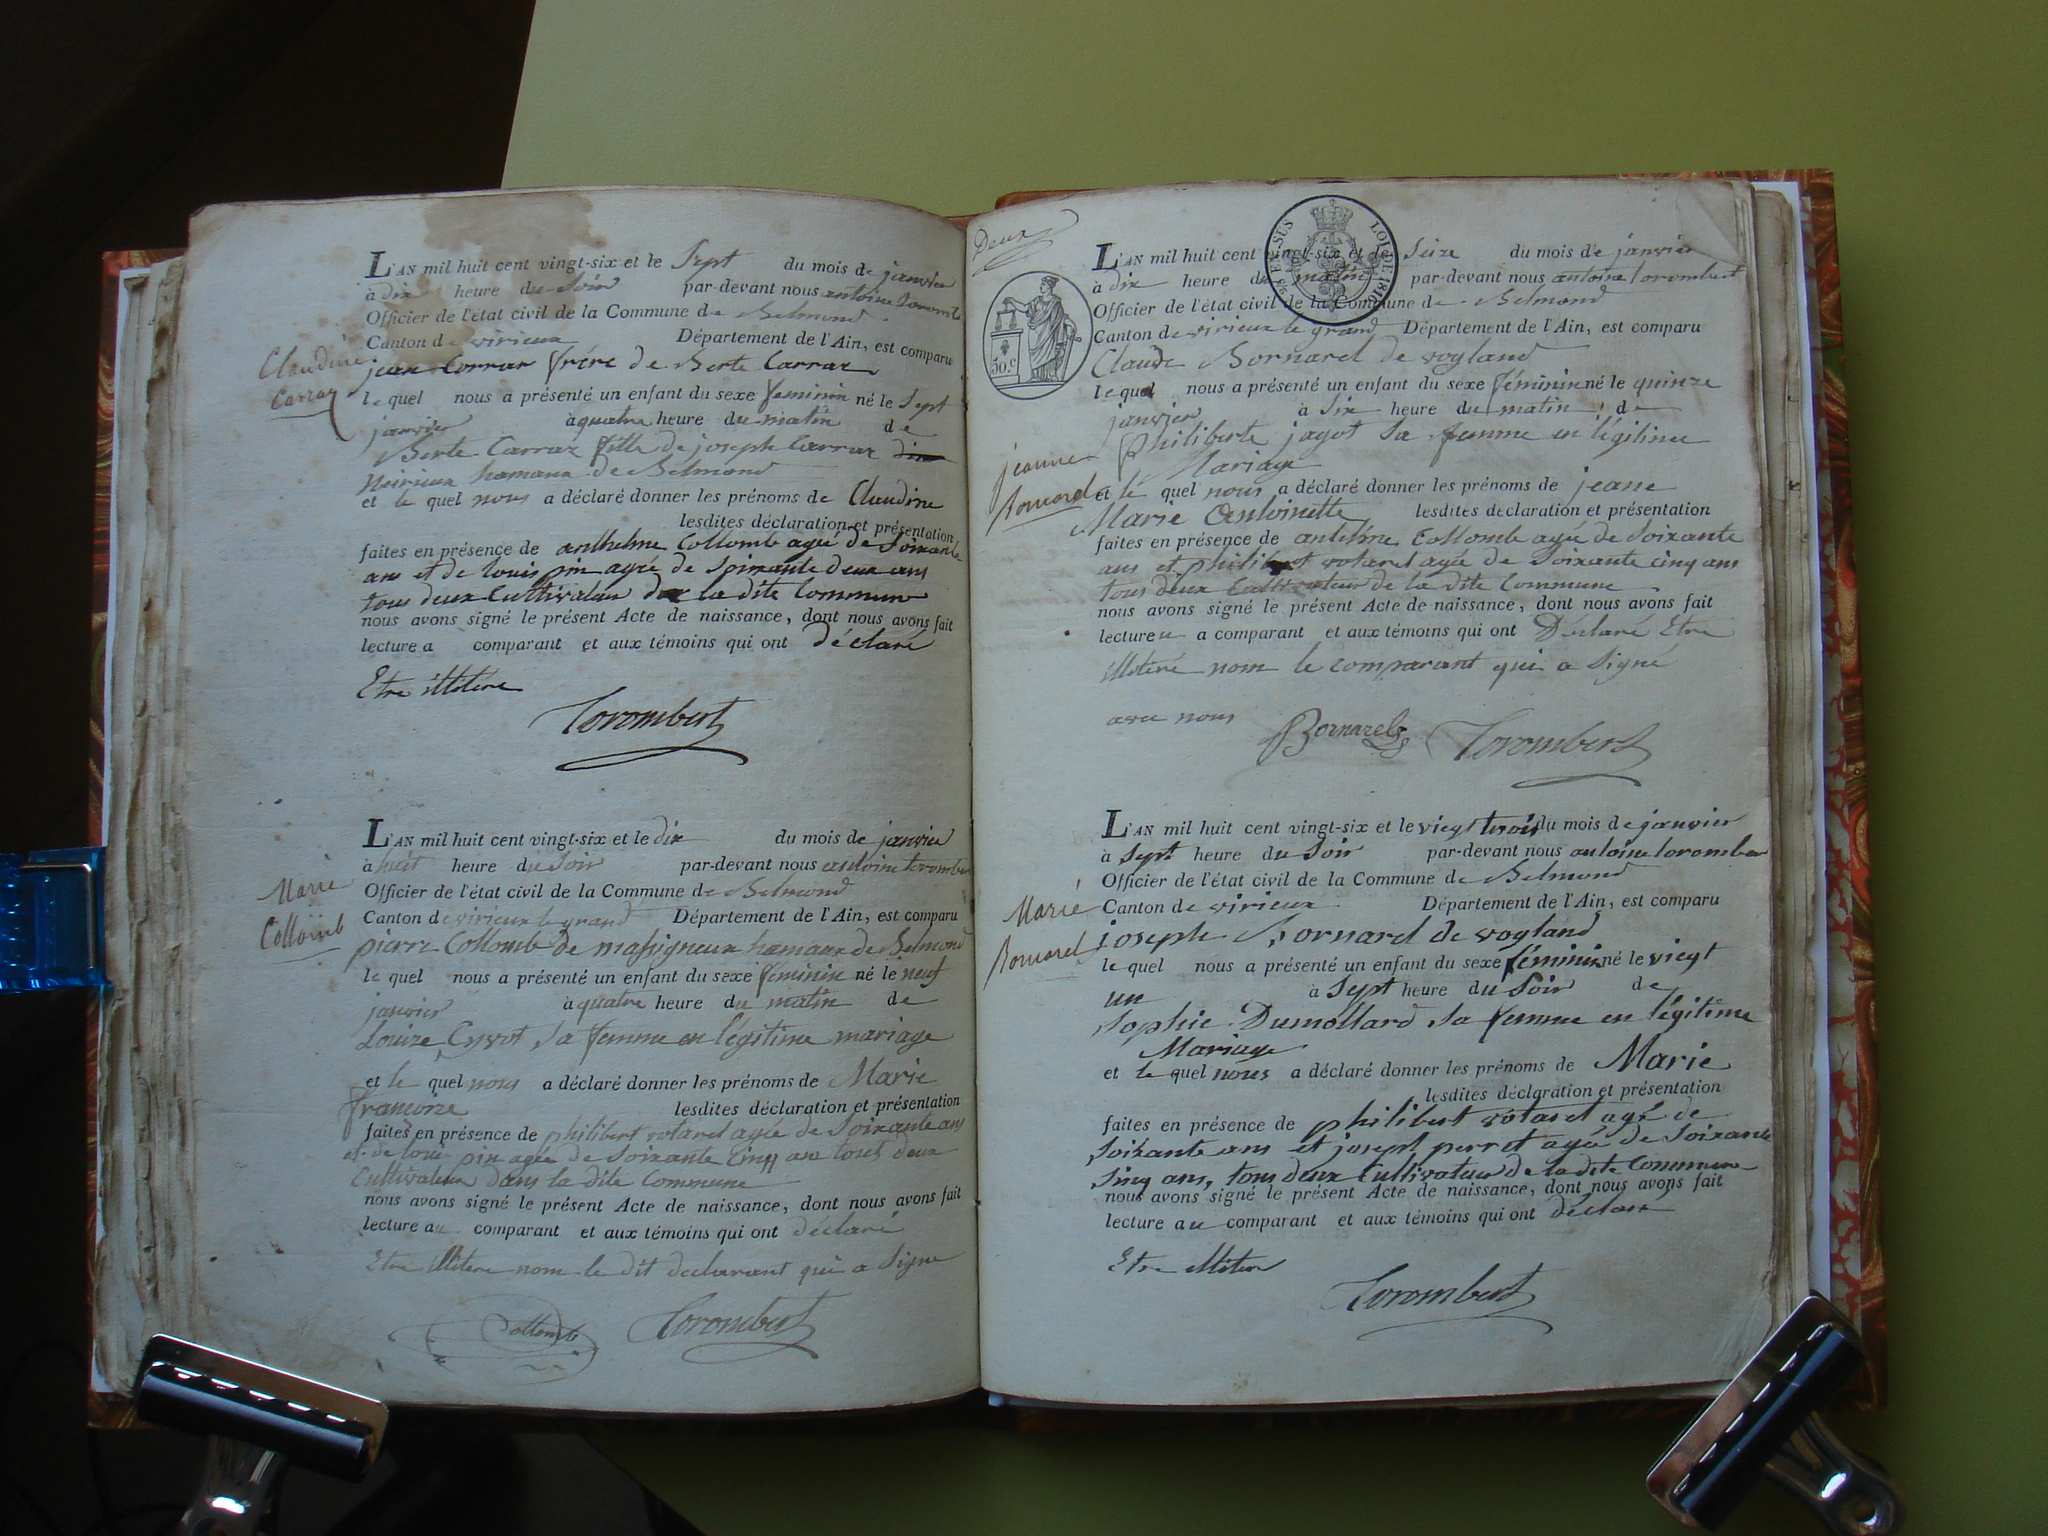 L'AN mil huit cent vingt-six et le Sept du mois de janvier
à dix heure du Soir par-devant nous antoine torombert
Officier de l'état civil de la Commune de Belmond
Canton de virieux Département de l'Ain, est comparu
jean Carraz frére de Berte Carraz
Claudine
Carraz
le quel nous a présenté un enfant du sexe feminin né le Sept
janvier à quatre heure du matin de
Berte Carraz fille de joseph Carraz
hamaux de Belmond
et le quel nous a déclaré donner les prénoms de Claudine
lesdites déclaration et présentation
faites en présence de anthelme Collomb agé de Soixante
ans et de louis pin agée de Soixante deux ans
tous deux Cultivateur de la dite Commune
nous avons signé le présent Acte de naissance, dont nous avons fait
lecture a comparant et aux témoins qui ont déclaré
Etre illitére
Torombert
L'AN mil huit cent vingt-six et le dix du mois de janvier
à huit heure du Soir par-devant nous antoine toromber
Officier de l'état civil de la Commune de Belmond
Canton de virieux le grand Département de l'Ain, est comparu
Marie
Collomb
pierre Collomb de massigneux hamaux de Belmond
le quel nous a présenté un enfant du sexe féminin né le neuf
janvier à quatre heure du matin de
Louise sa femme en légitime mariage
et le quel nous a déclaré donner les prénoms de Marie
françoize lesdites déclaration et présentation
faites en présence de philibert votarel agée de Soixante ans
et de loui pin agée de Soixante Cinq ans tous deux
Cultivateur dans la dite Commune
nous avons signé le présent Acte de naissance, dont nous avons fait
lecture au comparant et aux témoins qui ont déclaré
Etre illitére nom le dit declarant qui a Signe
Collomb Torombert
Deux
50.c
L'AN mil huit cent vingt-six et le Seize du mois de janvier
à dix heure du matin par-devant nous antoine torombert
Officier de l'état civil de la Commune de Belmond
Canton de virieux le grand Département de l'Ain, est comparu
Claude Bornarel de vogland
le quel nous a présenté un enfant du sexe féminin né le quinze
janvier à Six heure du matin, de
philiberte jagot sa femme en légitime
Mariage
jeanne
Bornarel
et le quel nous a déclaré donner les prénoms de jeane
Marie Antoinette lesdites déclaration et présentation
faites en présence de antelme Collomb agée de Soixante
ans et philibert votarel agée de Soixante cinq ans
tous deux Cultivateur de la dite Commune
nous avons signé le présent Acte de naissance, dont nous avons fait
lecture au comparant et aux témoins qui ont Déclaré Etre
illitéré nom le comparant qui a Signé
avec nous
Bornarel Torombert
L'AN mil huit cent vingt-six et le viegt trois du mois de janvier
à Sept heure du Soir par-devant nous antoine toromber
Officier de l'état civil de la Commune de Belmond
Canton de virieux Département de l'Ain, est comparu
Marie
Bornarel
joseph Bornarel de vogland
le quel nous a présenté un enfant du sexe féminin né le viegt
un à Sept heure du Soir de
Sophie Dumollard sa femme en légitime
Mariage
et le quel nous a déclaré donner les prénoms de Marie
lesdites déclaration et présentation
faites en présence de philibert votarel agé de
Soixante ans et joseph perret agée de Soixante
Sinq ans, tous deux Cultivateur de la dite Commune
nous avons signé le présent Acte de naissance, dont nous avons fait
lecture au comparant et aux témoins qui ont déclaré
Etre illitere
Torombert